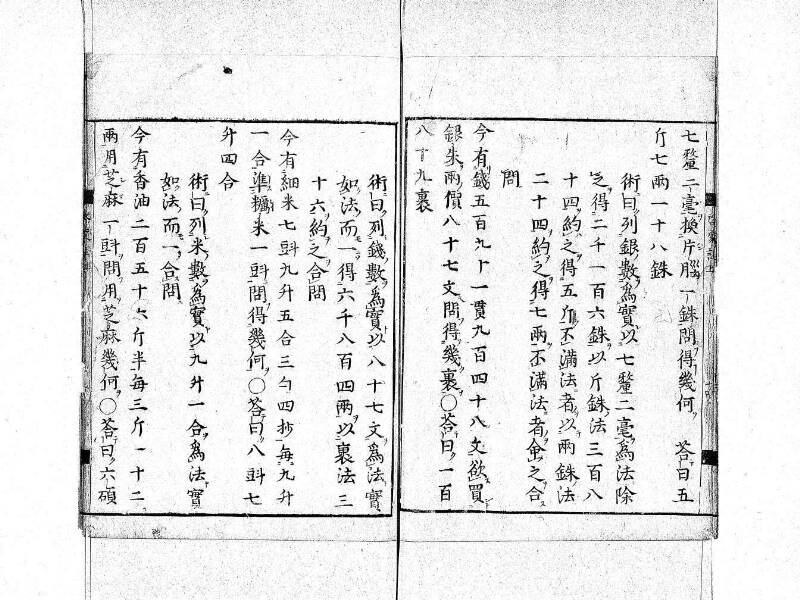 七釐二毫換片腦一銖問得幾何　答曰五
斤七兩一十八銖
術曰列銀數爲實以七釐二毫爲法除
之得二千一百六銖以斤銖法三百八
十四約之得五斤不滿法者以兩銖法
二十四約之得七兩不滿法者命之合
問
今有錢五百九十一貫九百四十八文欲買
銀朱兩價八十七文問得幾裹〇答曰一百
八十九裹
術曰列錢數爲實以八十七文爲法實
如法而一得六千八百四兩以裹法三
十六約之合問
今有細米七㪷九升五合三勺四抄每九升
一合準糯米一㪷問得幾何〇答曰八㪷七
升四合
術曰列米數爲實以九升一合爲法實
如法而一合問
今有香油二百五十六斤半每三斤一十二
兩用芝麻一㪷問用芝麻幾何〇答曰六碩